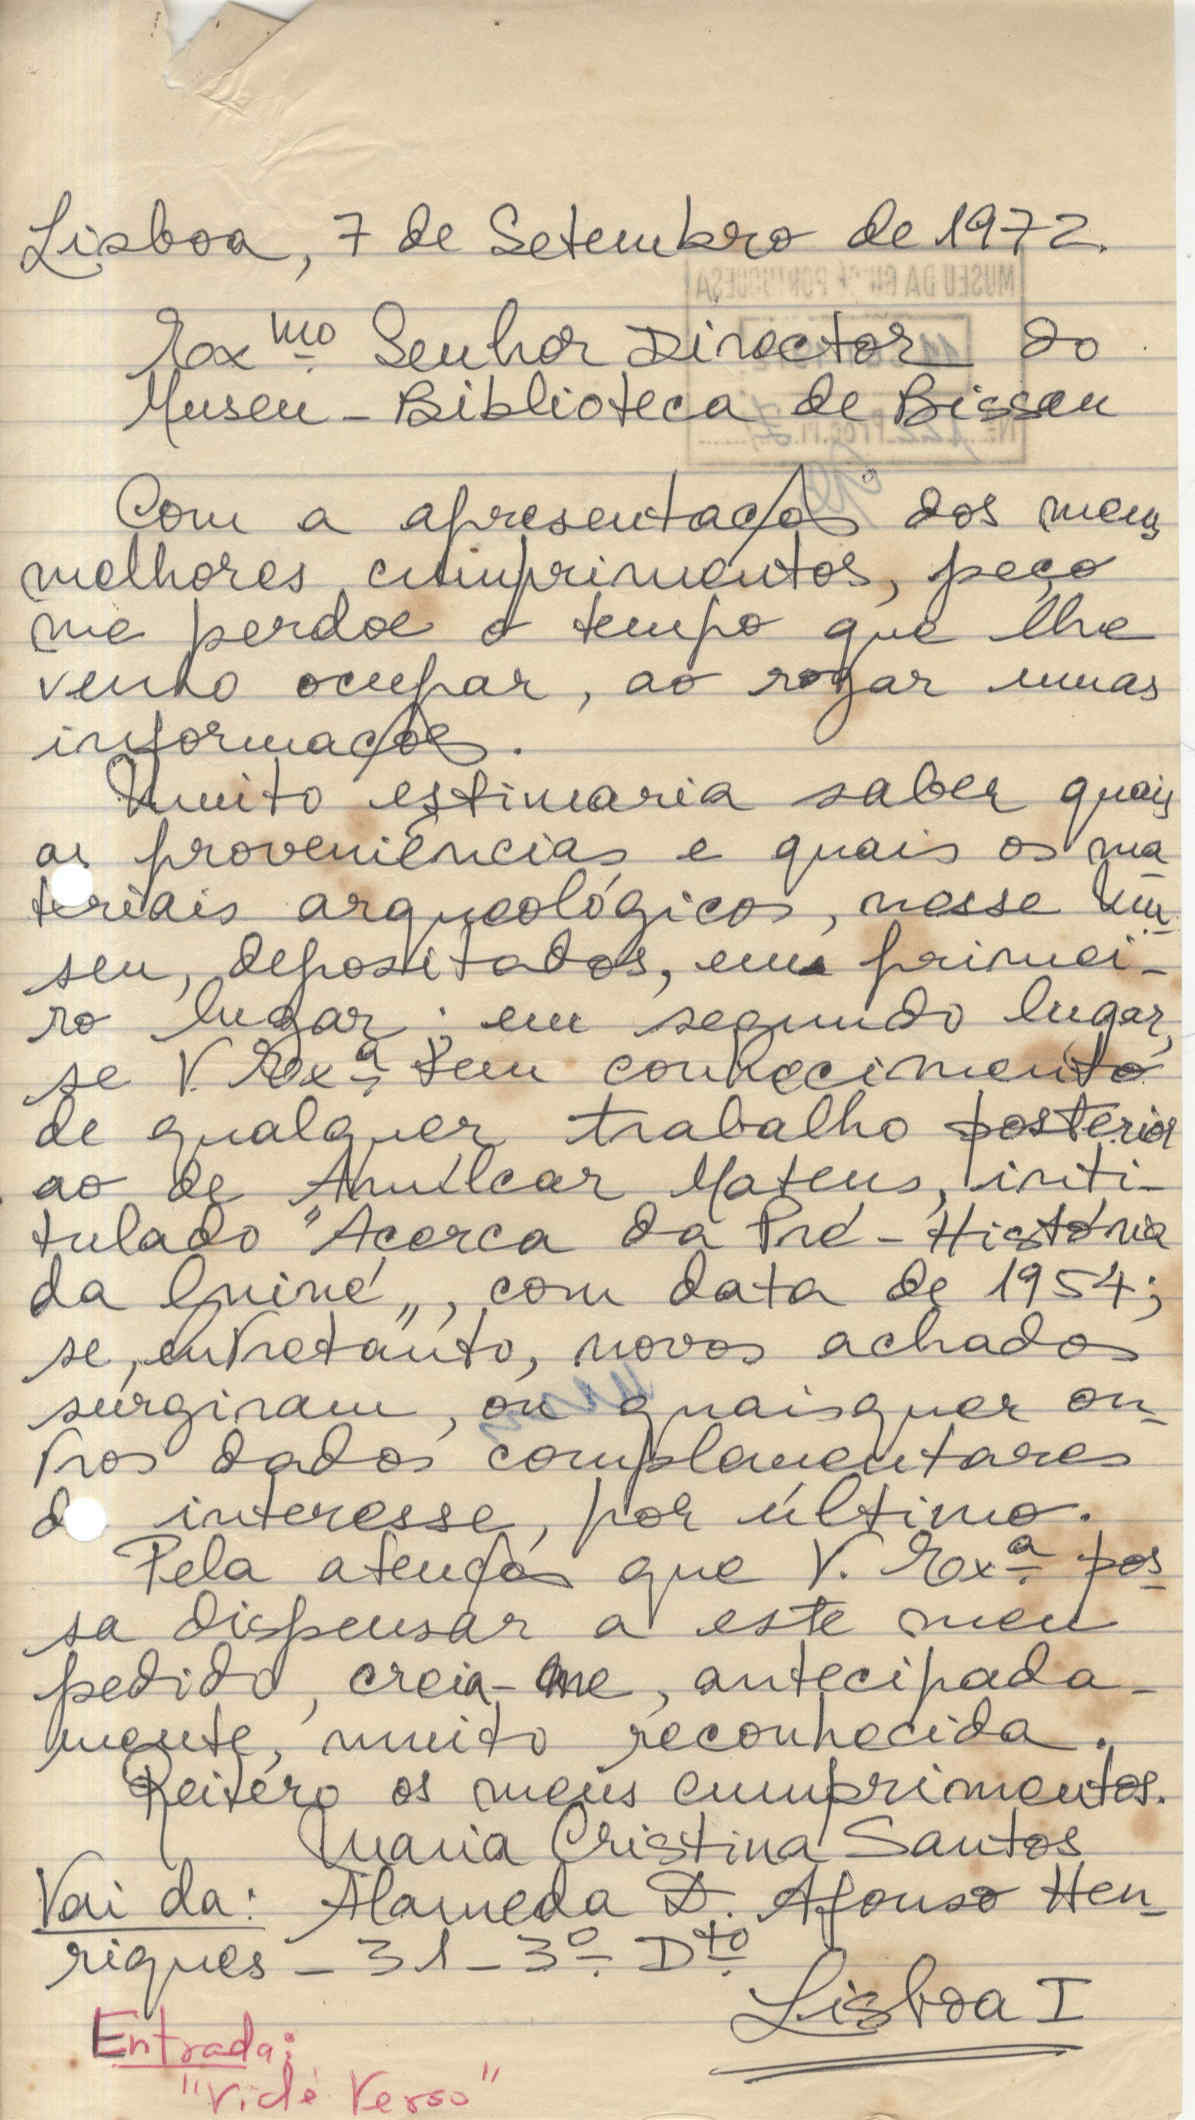 Lisboa, 7 de Setembro de 1972.
MUSEU DA GUINÉ PORTUGUESA
Ex.mo Senhor Director do
Museu - Biblioteca de Bissau
Com a apresentação dos meus
melhores cumprimentos, peço
me perdoe o tempo que lhe
venho ocupar, ao rogar umas
informações.
Muito estimaria saber quais
as proveniências e quais os ma-
teriais arqueológicos, nesse Mu-
seu, depositados, em primei-
ro lugar; em segundo lugar,
se V. Ex.ª tem conhecimento
de qualquer trabalho posterior
ao de Amílcar Mateus, inti-
tulado "Acerca da Pré-História
da Guiné", com data de 1954;
se, entretanto, novos achados
surgiram, ou quaisquer ou-
tros dados complementares
de interesse, por último.
Pela atenção que V. Ex.ª pos-
sa dispensar a este meu
pedido, creia-me, antecipada-
mente, muito reconhecida.
Reitero os meus cumprimentos.
Maria Cristina Santos
Vai da: Alameda D. Afonso Hen-
riques - 31 - 3.º Dto
Lisboa I
Entrada:
"Vidé Verso"